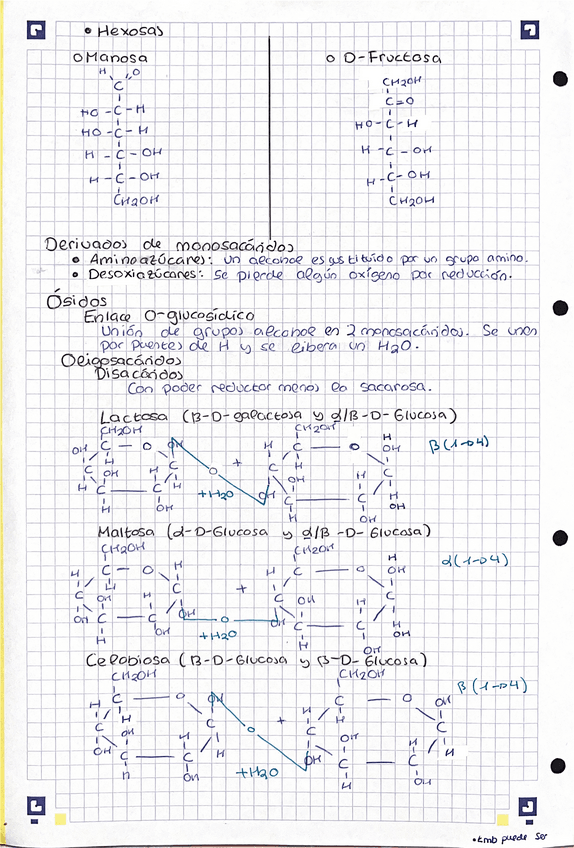 • Hexosas
o Manosa
o D-Fructosa
H O
C
HO - C - H
HO - C - H
H - C - OH
H - C - OH
CH2OH
CH2OH
C=O
HO - C - H
H - C - OH
H - C - OH
CH2OH
Derivados de monosacáridos
• Aminoazúcares: un alcohol es sustituido por un grupo amino.
• Desoxiazúcares: Se pierde algún oxígeno por reducción.
Ósidos
Enlace O-glucosídico
Unión de grupos alcohol en 2 monosacáridos. Se unen
por puentes de H y se libera un H2O.
Oligosacáridos
Disacáridos
Con poder reductor menos la sacarosa.
Lactosa (β-D-galactosa y α/β-D-Glucosa)
β(1→4)
CH2OH CH2OH
+
O
+H2O
Maltosa (α-D-Glucosa y α/β-D-Glucosa)
α(1→4)
CH2OH CH2OH
+
O
+H2O
Celobiosa (β-D-Glucosa y β-D-Glucosa)
β(1→4)
CH2OH CH2OH
+
O
+H2O
• tmb puede ser